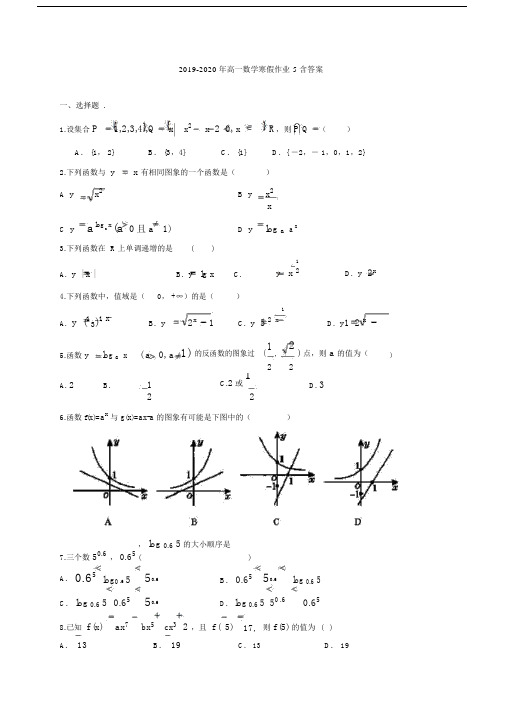 2019-2020 年高一数学寒假作业 5 含答案
一、选择题 .
1.设集合 P = {1,2,3,4}, Q = {x| x² − x−2 < 0, x ∈ R}, 则 P∩Q = ( )
A. {1, 2} B. {3, 4} C. {1} D. {－2, － 1, 0, 1, 2}
2.下列函数与 y = x 有相同图象的一个函数是( )
A y = √x² B y = x²/x
C y = a^(log_a x) (a > 0 且 a ≠ 1) D y = log_a a^x
3.下列函数在 R 上单调递增的是 ( )
A. y = |x| B. y = lg x C. y = x^(1/2) D. y = 2^x
4.下列函数中，值域是( 0, +∞) 的是( )
A. y = (1/3)^(1-x) B. y = √(2^x − 1) C. y = D. y
5.函数 y = log_a x (a > 0, a ≠ 1) 的反函数的图象过 (1/2, √2/2) 点，则 a 的值为( )
A. 2 B. 1/2 C. 2 或 1/2 D. 3
6.函数 f(x)=a^x 与 g(x)=ax-a 的图象有可能是下图中的( )
y 1 O x A
y 1 O x B
y 1 O 1 -1 x C
y 1 O 1 -1 x D
7.三个数 5^0.6 , 0.6^5 , log_0.6 5 的大小顺序是 ( )
A. 0.6^5 < log_0.6 5 < 5^0.6 B. 0.6^5 < 5^0.6 < log_0.6 5
C. log_0.6 5 < 0.6^5 < 5^0.6 D. log_0.6 5 < 5^0.6 < 0.6^5
8.已知 f(x) = ax^7 − bx^5 + cx^3 + 2 , 且 f(−5) = 17, 则 f(5) 的值为 ( )
A. −13 B. −19 C. 13 D. 19